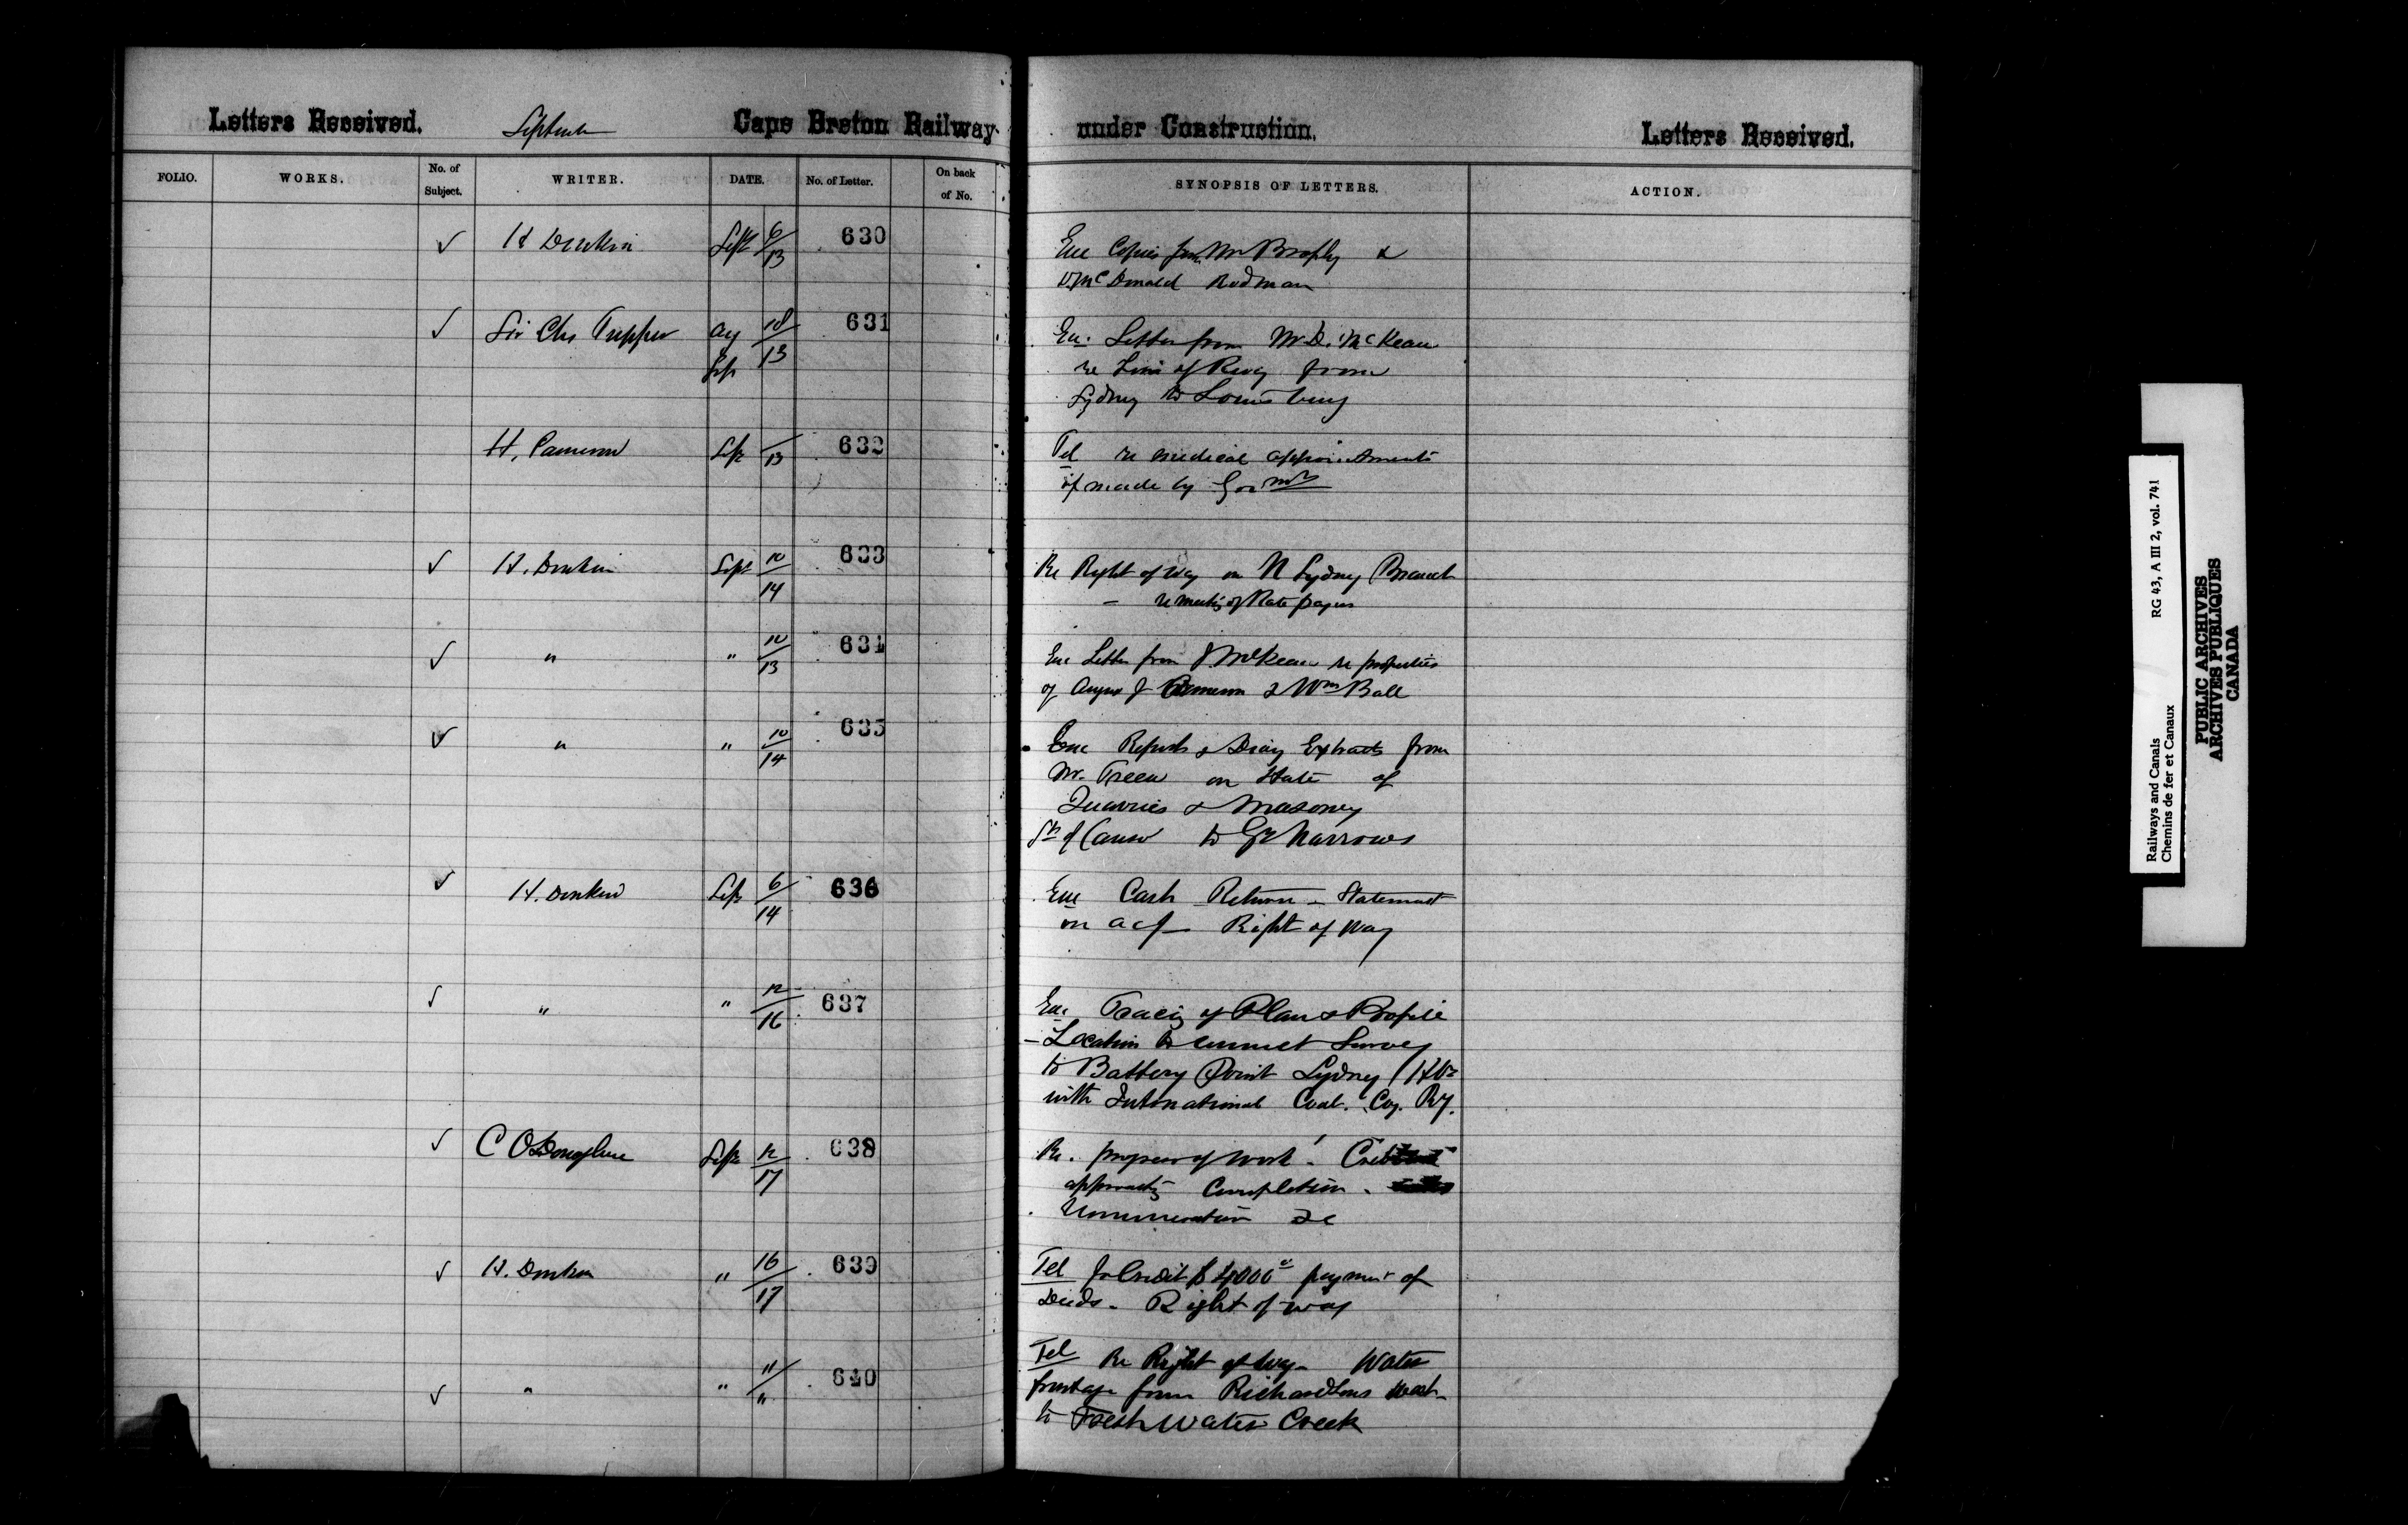 Letters Received. September Cape Breton Railway under Construction. Letters Received.
FOLIO. WORKS. No. of Subject. WRITER. DATE. No. of Letter. On back of No. SYNOPSIS OF LETTERS. ACTION.
✓ H Donkin Sept 6/13 630 Enc Copies from Mr Brophy &
D. McDonald Rodman
✓ Sir Chs Tupper Aug 18/ 631 Enc. Letter from Mr D. McKeen
Sep 13 re Line of Rwy from
Sydney to Louisburg
H. Cameron Sep /13 632 Tel re medical appointments
if made by Govmt
✓ H. Donkin Sept 10/14 633 Re Right of Way on N Sydney Branch
— re meeting of Rate payers
✓ " " 10/13 634 Enc Letter from McKeen re properties
of Angus J Cameron & Wm Ball
✓ " " 10/14 635 Enc Reports & Diary Extracts from
Mr. Treen on State of
Quarries & Masonry
St of Canso to Gr Narrows
✓ H. Donkin Sep 6/14 636 Enc Cash Return - Statement
on a c/ Right of Way
✓ " " 12/16 637 Enc Tracing of Plan & Profile
- Location to connect Survey
to Battery Point Sydney Hbr
with International Coal. Coy. Ry.
✓ C O'Donoghue Sept 12/17 638 Re. progress of work.
approaching Completion.
Remuneration &c
✓ H. Donkin " 16/17 639 Tel for Credit $4000 payment of
Deeds. Right of way
✓ " " "/" 640 Tel Re Right of Way - Water
frontage from Richardsons
to Fresh Water Creek
Railways and Canals RG 43, A III 2, vol. 741
Chemins de fer et Canaux
PUBLIC ARCHIVES
ARCHIVES PUBLIQUES
CANADA